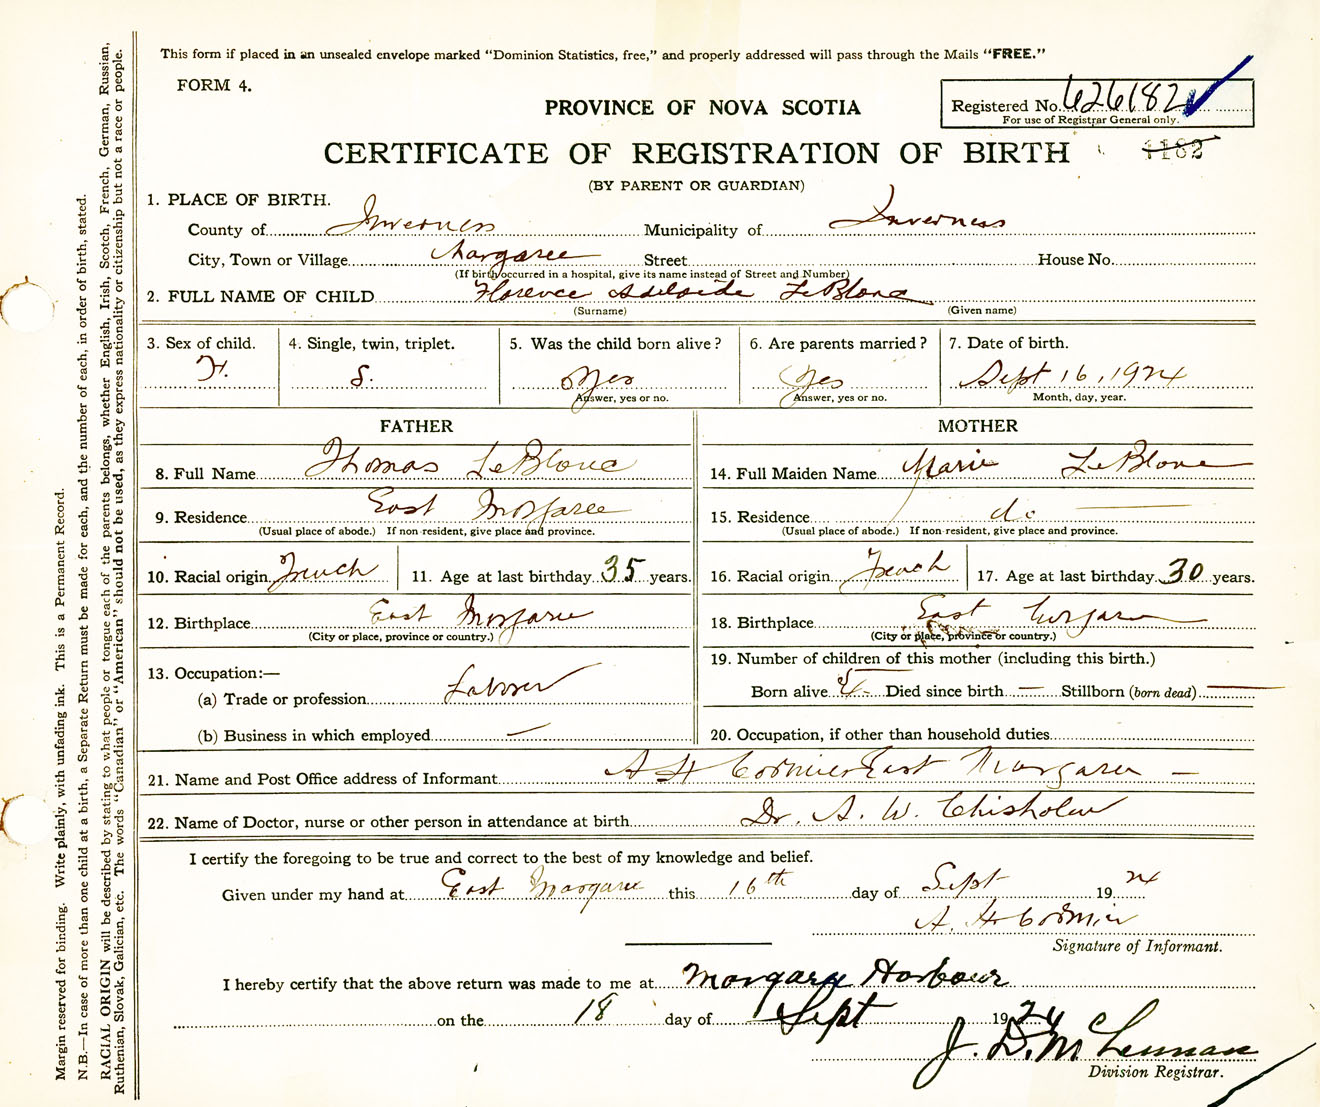 This form if placed in an unsealed envelope marked "Dominion Statistics, free," and properly addressed will pass through the Mails "FREE."
FORM 4.
Registered No. 626182
For use of Registrar General only.
PROVINCE OF NOVA SCOTIA
1182
CERTIFICATE OF REGISTRATION OF BIRTH
(BY PARENT OR GUARDIAN)
1. PLACE OF BIRTH.
County of Inverness Municipality of Inverness
City, Town or Village Margaree Street House No.
(If birth occurred in a hospital, give its name instead of Street and Number)
2. FULL NAME OF CHILD Florence Adelaide LeBlanc
(Surname) (Given name)
3. Sex of child. 4. Single, twin, triplet. 5. Was the child born alive? 6. Are parents married? 7. Date of birth.
F. S. Yes Yes Sept 16, 1924
Answer, yes or no. Answer, yes or no. Month, day, year.
FATHER MOTHER
8. Full Name Thomas LeBlanc 14. Full Maiden Name Marie LeBlanc
9. Residence East Margaree 15. Residence do
(Usual place of abode.) If non-resident, give place and province. (Usual place of abode.) If non-resident, give place and province.
10. Racial origin French 11. Age at last birthday 35 years. 16. Racial origin French 17. Age at last birthday 30 years.
12. Birthplace East Margaree 18. Birthplace East Margaree
(City or place, province or country.) (City or place, province or country.)
13. Occupation:— 19. Number of children of this mother (including this birth.)
(a) Trade or profession Laborer Born alive 5 Died since birth — Stillborn (born dead) —
(b) Business in which employed — 20. Occupation, if other than household duties
21. Name and Post Office address of Informant A H Cormier East Margaree —
22. Name of Doctor, nurse or other person in attendance at birth Dr. A. W. Chisholm
I certify the foregoing to be true and correct to the best of my knowledge and belief.
Given under my hand at East Margaree this 16th day of Sept 1924
A. H Cormier
Signature of Informant.
I hereby certify that the above return was made to me at Margaree Harbour
on the 18 day of Sept 1924
J. D. McLennan
Division Registrar.
Margin reserved for binding. Write plainly, with unfading ink. This is a Permanent Record.
N.B.—In case of more than one child at a birth, a Separate Return must be made for each, and the number of each, in order of birth, stated.
RACIAL ORIGIN will be described by stating to what people or tongue each of the parents belongs, whether English, Irish, Scotch, French, German, Russian,
Ruthenian, Slovak, Galician, etc. The words "Canadian" or "American" should not be used, as they express nationality or citizenship but not a race or people.